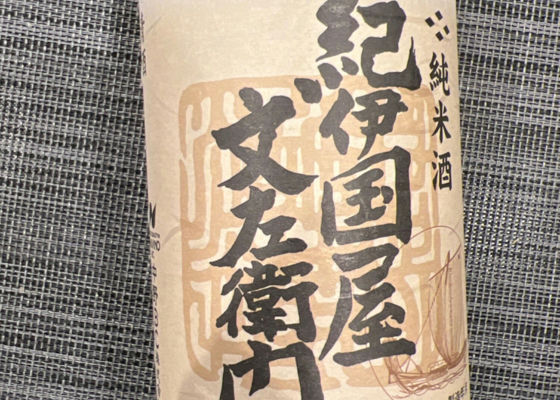 純米酒
紀伊国屋
文左衛门